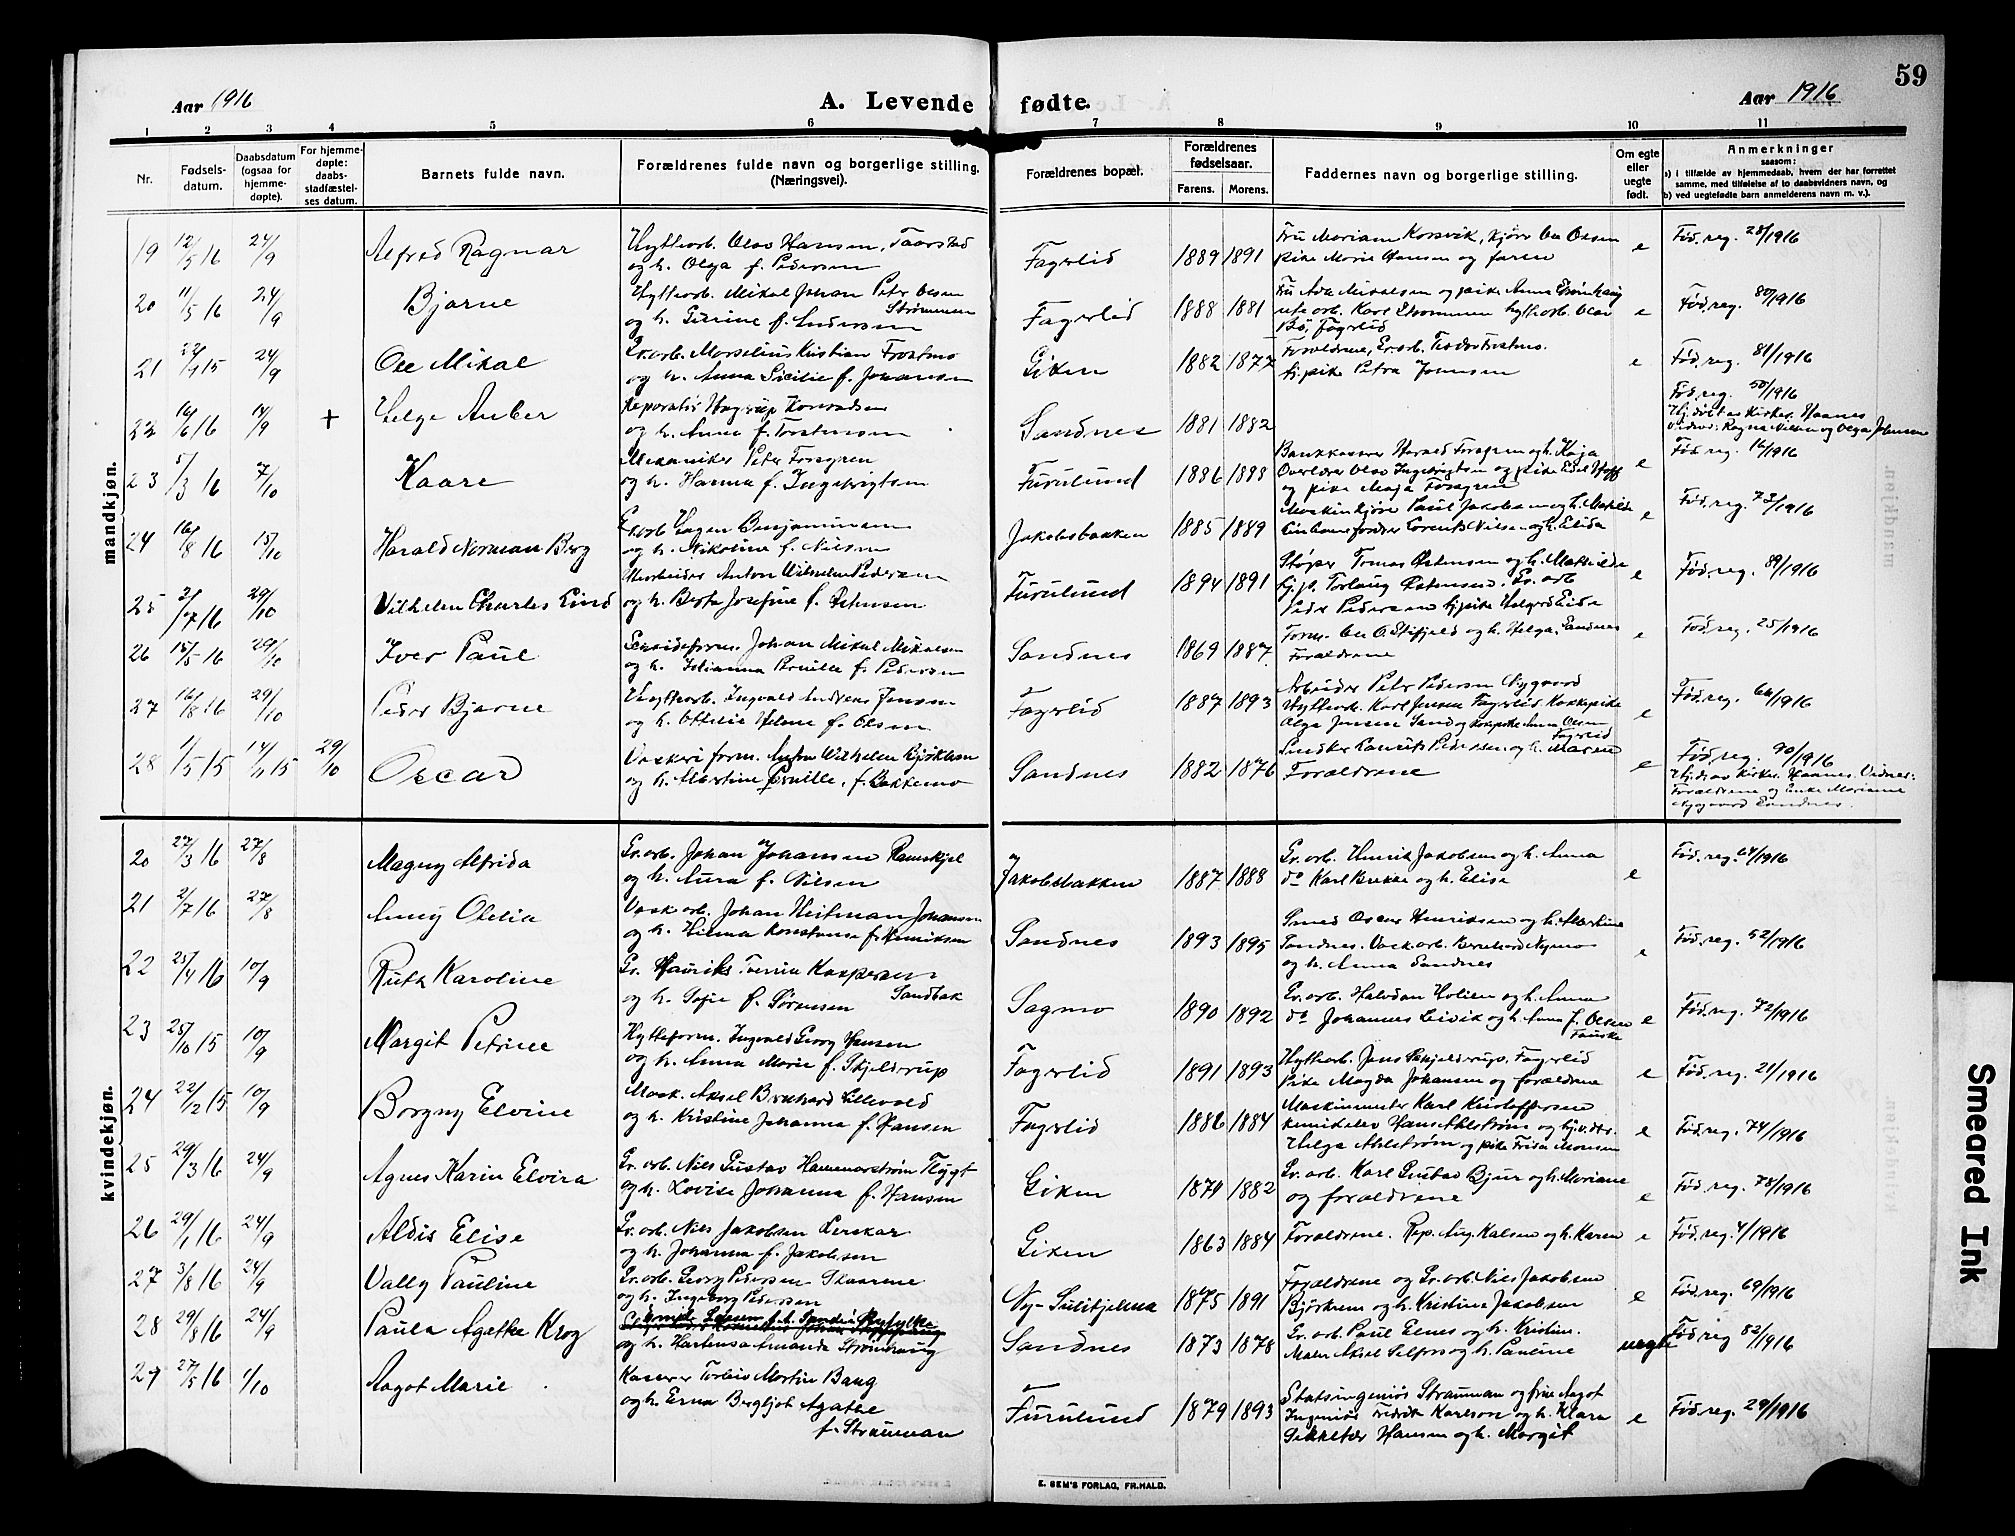 59
Aar 1916 A. Levende fødte. Aar 1916
1 2 3 4 5 6 7 8 9 10 11
Nr.
Fødsels-
datum.
Daabsdatum
(ogsaa for
hjemme-
døpte).
For hjemme-
døpte:
daabs-
stadfæstel-
ses datum.
Barnets fulde navn.
Forældrenes fulde navn og borgerlige stilling.
(Næringsvei).
Forældrenes bopæl.
Forældrenes
fødselsaar.
Farens. Morens.
Faddernes navn og borgerlige stilling.
Om egte
eller
uegte
født.
Anmerkninger
saasom:
a) i tilfælde av hjemmedaab, hvem der har forrettet
samme, med tilføielse af to daabsvidners navn, og
b) ved uegtefødte barn anmelderens navn m. v.).
mandkjøn.
19 12/5 16 24/9 Alfred Ragnar
Hytteorb. Olav Hansen, Taarstad
og h. Olga f. Pedersen
Fagerlid 1889 1891
pike Marie Hansen og faren
e Fød.reg. 28/1916
20 11/5 16 24/9 Bjarne
Hytteorb. Mikal Johan Petr Olsen
Strømmen
og h. Gurine f. Andersen
Fagerlid 1888 1881
Bø, Fagerlid
e Fød.reg. 80/1916
21 24/9 Ole Mikal
Gr.orb. Marselius Kristian Frostmo
og h. Anna Sicilie f. Johansen
Giken 1882 1877
hj.pike Petra Johnsen
e Fød.reg. 81/1916
22 16/6 16 14/9 + Helge Anber
Reparatør Hagrup Konradsen
og h. Anna f. Torstensen
Sandnes 1881 1882
Fød.reg. 50/1916
Hj.døbt av Kirkes. Haanes
Vidner: Ragna Nilsen og Olga Johnsen
23 5/3 16 7/10 Kaare
Mekaniker Peter Forsgren
og h. Harma f. Ingebrigtsen
Furulund 1886 1888
Bankkaserer Harald Forsgren og h. Kaja
Overlærer Olav Ingebrigtsen og pike Edel Hoff
og pike Maja Forsgren
e Fød.reg. 16/1916
24 16/8 16 15/10 Harald Norman Berg
Gr.orb Hagen Benjaminsen
og h. Nikoline f. Nilsen
Jakobsbakken 1885 1889
Maskinkjører Paul Jakobsen og h. Matilde
Lorents Nilsen og h. Elida
e Fød.reg. 73/1916
25 2/7 16 29/10 Vilhelm Charles Lind
Anton Wilhelm Pedersen
og h. Berta Josefine f. Østensen
Furulund 1894 1891
Støper Tomas Østensen og h. Mathilde
hj.p. Torlaug Østensen. Gr. orb
Peder Pedersen
e Fød.reg. 89/1916
26 15/5 16 29/10 Iver Paul
Johan Mikal Mikalsen
og h. Julianna Pernille f. Pedersen
Sandnes 1869 1887
Form. Ole O. Stifjeld og h. Helga, Sandnes
Forældrene
e Fød.reg. 25/1916
27 16/8 16 29/10 Peder Bjarne
Hytteorb. Ingvald Andreas Jensen
og h. Ottilie Helene f. Olsen
Fagerlid 1887 1893
Arbeider Petr Pedersen Nygaard
Hytteorb. Karl Jensen Fagerlid. Kokkepike
Olga Jensen Sand og kokepike Anna Olsen
Fagerlid
e Fød.reg. 66/1916
28 1/5 15 14/11 15 29/10 Oscar
Vaskeri form. Anton Wilhelm Bjørklund
og h. Martine Pernille, f. Bakkemo
Sandnes 1882 1876
Snedker Laurits Pedersen og h. Maren
Forældrene
e Fød.reg. 90/1916
Hj.dr av Kirkes. Haanes. Vidner:
Forældrene og Enke Mariane
Nygaard Sandnes.
kvindekjøn.
20 27/3 16 27/8 Magny Alfrida
Gr.orb. Johan Johansen Ramskjel
og h. Aura f. Nilsen
Jakobsbakken 1887 1888
Gr. orb. Henrik Jakobsen og h. Anna
do Karl Brekke og h. Elise
e Fød.reg. 64/1916
21 2/7 16 27/8 Anny Otelia
Vask orb. Johan Heitman Johansen
og h. Hilma Konstanse f. Henriksen
Sandnes 1893 1895
Smed Oscar Henriksen og h. Martine
Sandnes. Vask.orb. Bernhard Nymo
og h. Anna Sandnes
e Fød.reg. 52/1916
22 25/4 16 10/9 Ruth Karoline
Gr. Hauriks Kaspersen
Sandbak
og h. Sofie f. Sørensen
Sagmo 1890 1892
Gr.orb. Halvdan Holien og h. Anna
do Johannes Leivik og h. Anna f. Olsen
Fauske
e Fød.reg. 72/1916
23 25/10 15 10/9 Margit Petrine
Hytteform. Ingvald Georg Hansen
og h. Anna Marie f. Skjeldrup
Fagerlid 1891 1893
Hytteorb. Jens Skjeldrup, Fagerlid
Pike Magda Johansen og forældrene
e Fød.reg. 21/1916
24 22/12 15 10/9 Borgny Elvine
Mask. Aksel Bernhard Lillevold
og h. Kristine Johanna f. Hansen
Fagerlid 1886 1884
Maskinmester Karl Kristoffersen
kemikelev Hans Ahlstrøm og
Helga Ahlstrøm og pike Frida Monsen
e Fød.reg. 74/1916
25 29/3 16 24/9 Agnes Karin Elvira
Gr. orb. Nils Gustav Hammarstrøm Flygt
og h. Lovise Johanna f. Hansen
Giken 1874 1882
Gr. orb. Karl Gustav Bjur og h. Mariane
og forældrene
e Fød.reg. 78/1916
26 29/1 16 24/9 Aldis Elise
Gr. orb. Nils Jakobsen Lerskar
og h. Johanna f. Jakobsen
Giken 1863 1884
Forældrene. Rep. Aug. Kalsen og h. Karen
e Fød.reg. 4/1916
27 3/8 16 24/9 Vally Pauline
Gr.orb. Georg Pedersen Skaarene
og h. Ingeborg Pedersen
Ny-Sulitjelma 1875 1891
Forældrene og Gr. orb. Nils Jakobsen
Bjørkem og h. Kristine Jakobsen
e Fød.reg. 69/1916
28 29/8 16 24/9 Paula Agathe Krog
og h. Hartensa Amanda Strømhaug
Sandnes 1873 1878
Gr. orb. Paul Elnes og h. Kristine.
Maler Aksel Selfors og h. Pauline
uegte Fød reg 82/1916
29 27/5 16 1/10 Aagot Marie
Kaserer Torleis Martin Baug
og h. Erna Bergljot Agathe
f. Strauman
Furulund 1879 1893
Statsingeniør Strauman og frue Aagot
Ingeniør Fredrik Karlson og h. Klara
Sekretær Hansen og h. Margit
e Fød.reg. 29/1916
E. SEM'S FORLAG, FR.HALD.
Smeared Ink